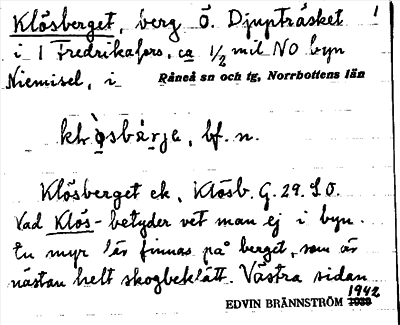 Klösberget, berg Ö. Djupträsket 1
i 1 Fredrikafors, ca 1/2 mil NO byn
Niemisel, i Råneå sn och tg, Norrbottens län
bf. n.
Klösberget ek, Klösb. G. 29. S.O.
Vad Klös- betyder vet man ej i byn.
En myr lär finnas på berget, som är
nästan helt skogbeklätt. Västra sidan
1942
EDVIN BRÄNNSTRÖM